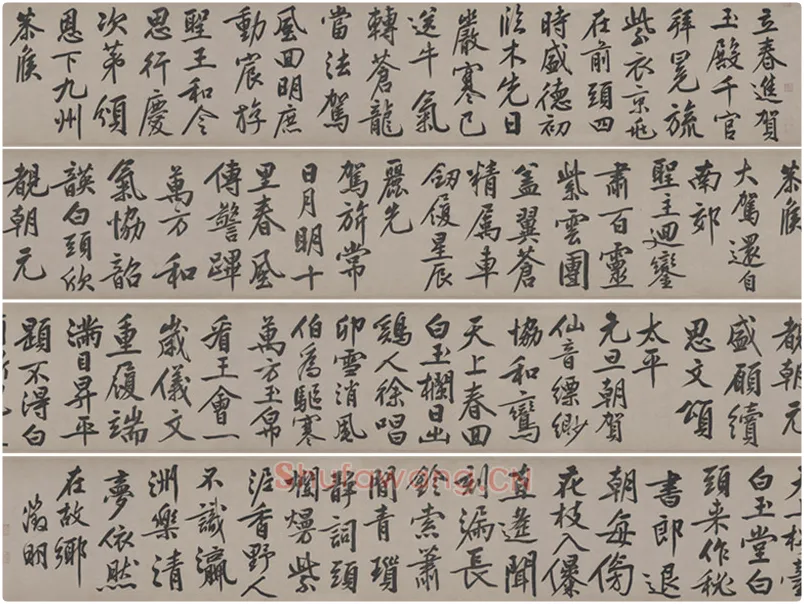 立春進賀
玉殿千官
拜冕旒
紫衣京兆
在前頭四
時盛德初
臨木先日
嚴寒已
送牛氣
轉蒼龍
當法駕
風回明庶
動宸游
聖王和令
思行慶
次第頌
恩下九州
恭候
恭候
大駕還自
南郊
聖主迴鑾
肅百靈
紫雲團
蓋翼蒼
精屬車
劒履星辰
麗先
駕旂常
日月明十
里春風
傳警蹕
萬方和
氣協韶
韺白頭欣
覩朝元
覩朝元
盛願續
思文頌
太平
元旦朝賀
仙音縹緲
協和鸞
天上春回
白玉欄日出
鷄人徐唱
卯雪消風
伯為驅寒
萬方玉帛
看王會一
歲儀文
重履端
滿目昇平
題不得白
白玉堂白
頭來作秘
書郎退
朝每傍
花枝入儤
直遙聞
刻漏長
鈴索蕭
閒青瑣
靜詞頭
爛熳紫
泥香野人
不識瀛
洲樂清
夢依然
在故鄉
徵明
Shufawang.CN